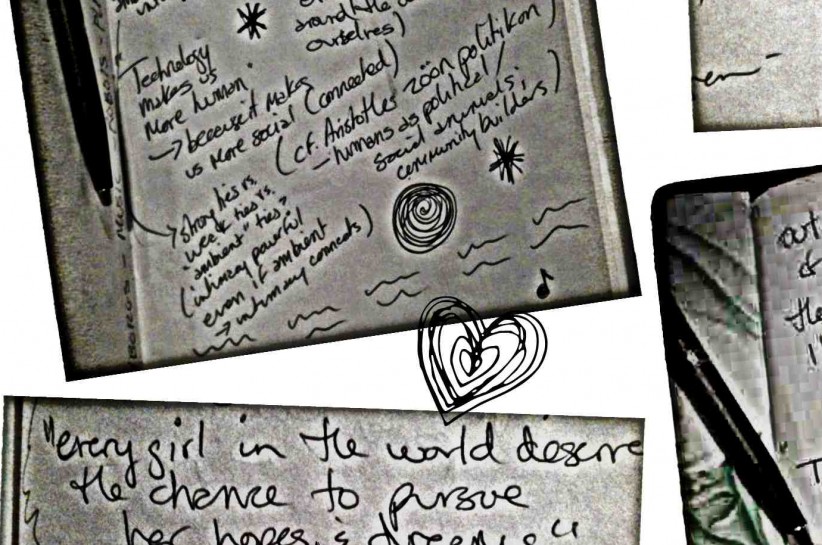 around the
ourselves)
Technology
makes us
more human.
→ because it makes
us more social (connected)
(cf. Aristotle's zōön politikon)
– humans as political/
social animals;
community builders)
→ strong ties vs.
weak ties vs.
"ambient" ties?
(intimacy powerful
even if ambient)
→ intimacy connects
"every girl in the world deserve
the chance to pursue
her hopes & dreams"
out
of
the